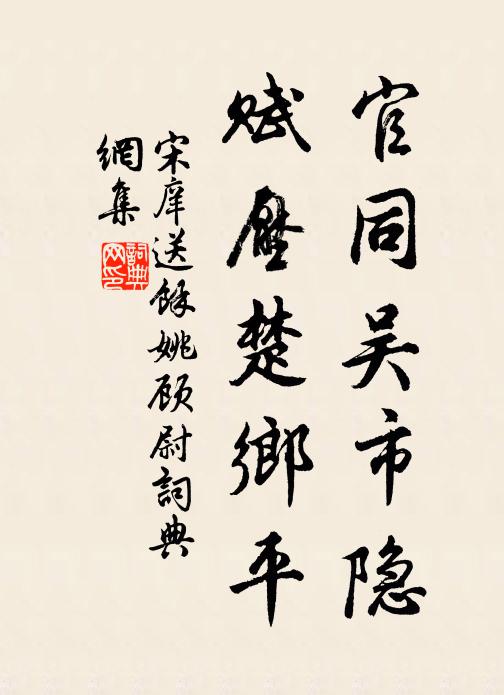 官同吴市隐
赋壓楚鄉平
宋庠送餘姚顾尉詞典
網集
詞典网印